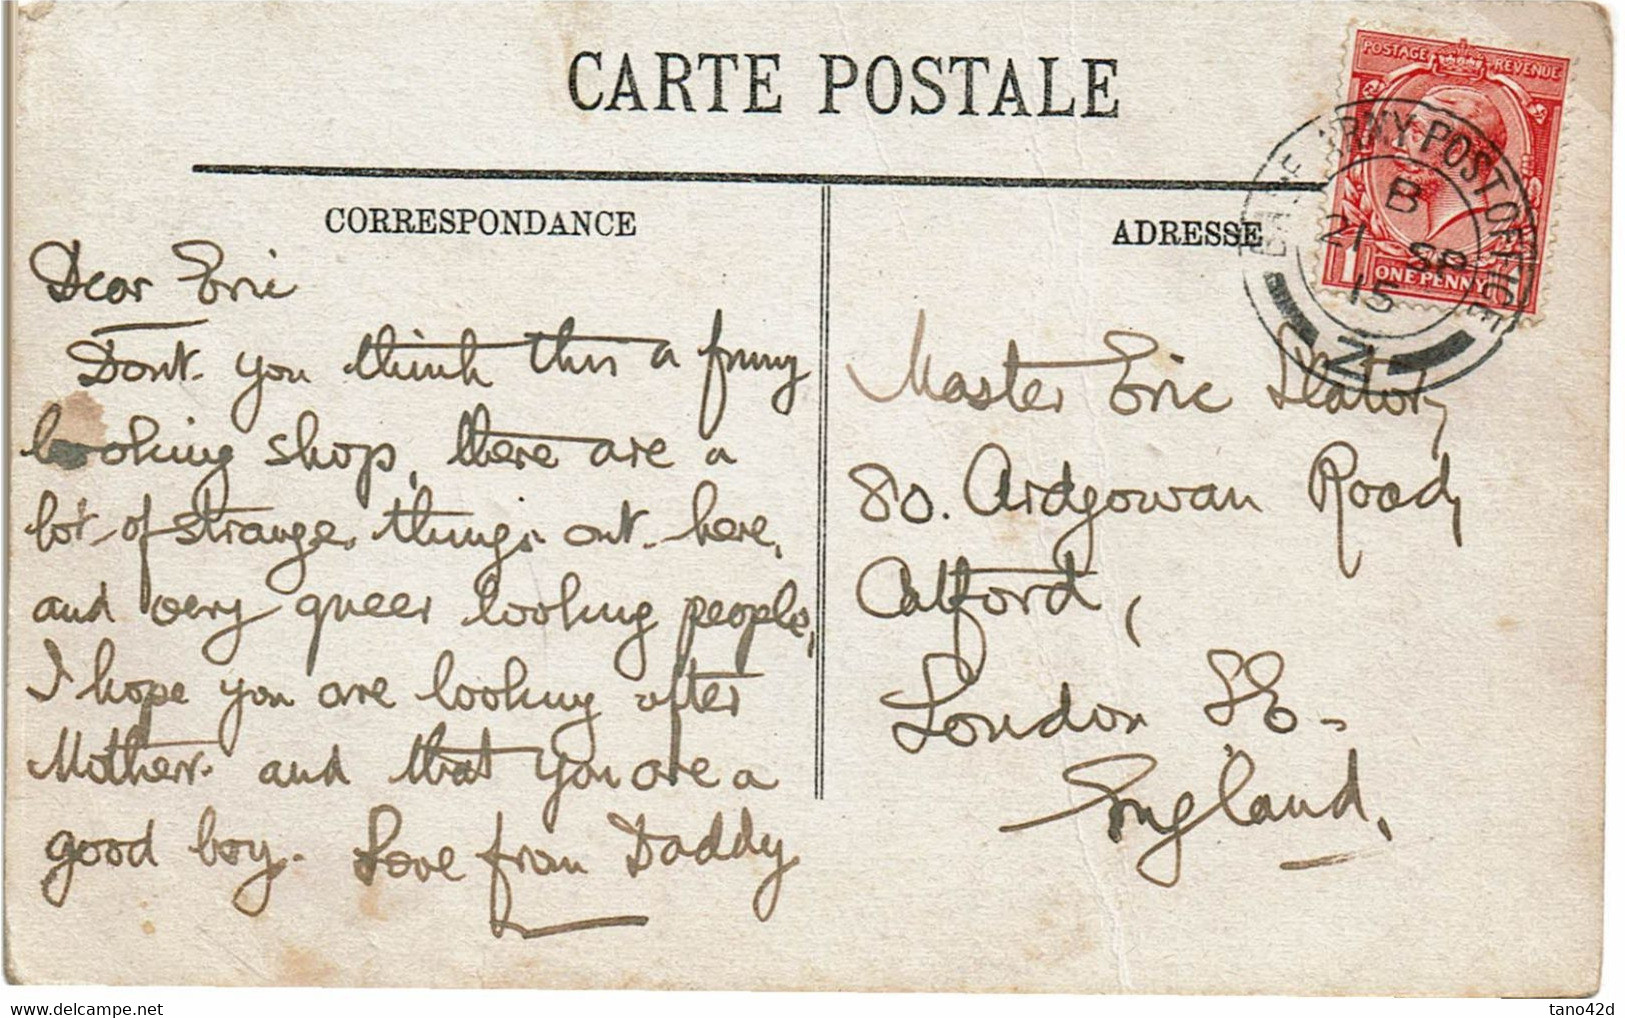 CARTE POSTALE
CORRESPONDANCE
ADRESSE
POSTAGE REVENUE
ONE PENNY
BASE ARMY POST OFFICE
B
21 SP
15
Z1
Dear Eric
Dont you think this a funny
looking shop, there are a
lot of strange things out here,
and very queer looking people,
I hope you are looking after
Mother and that you are a
good boy. Love from Daddy
Master Eric
80. Ardgowan Road,
Catford,
London SE
England.
delcampe.net
tano42d